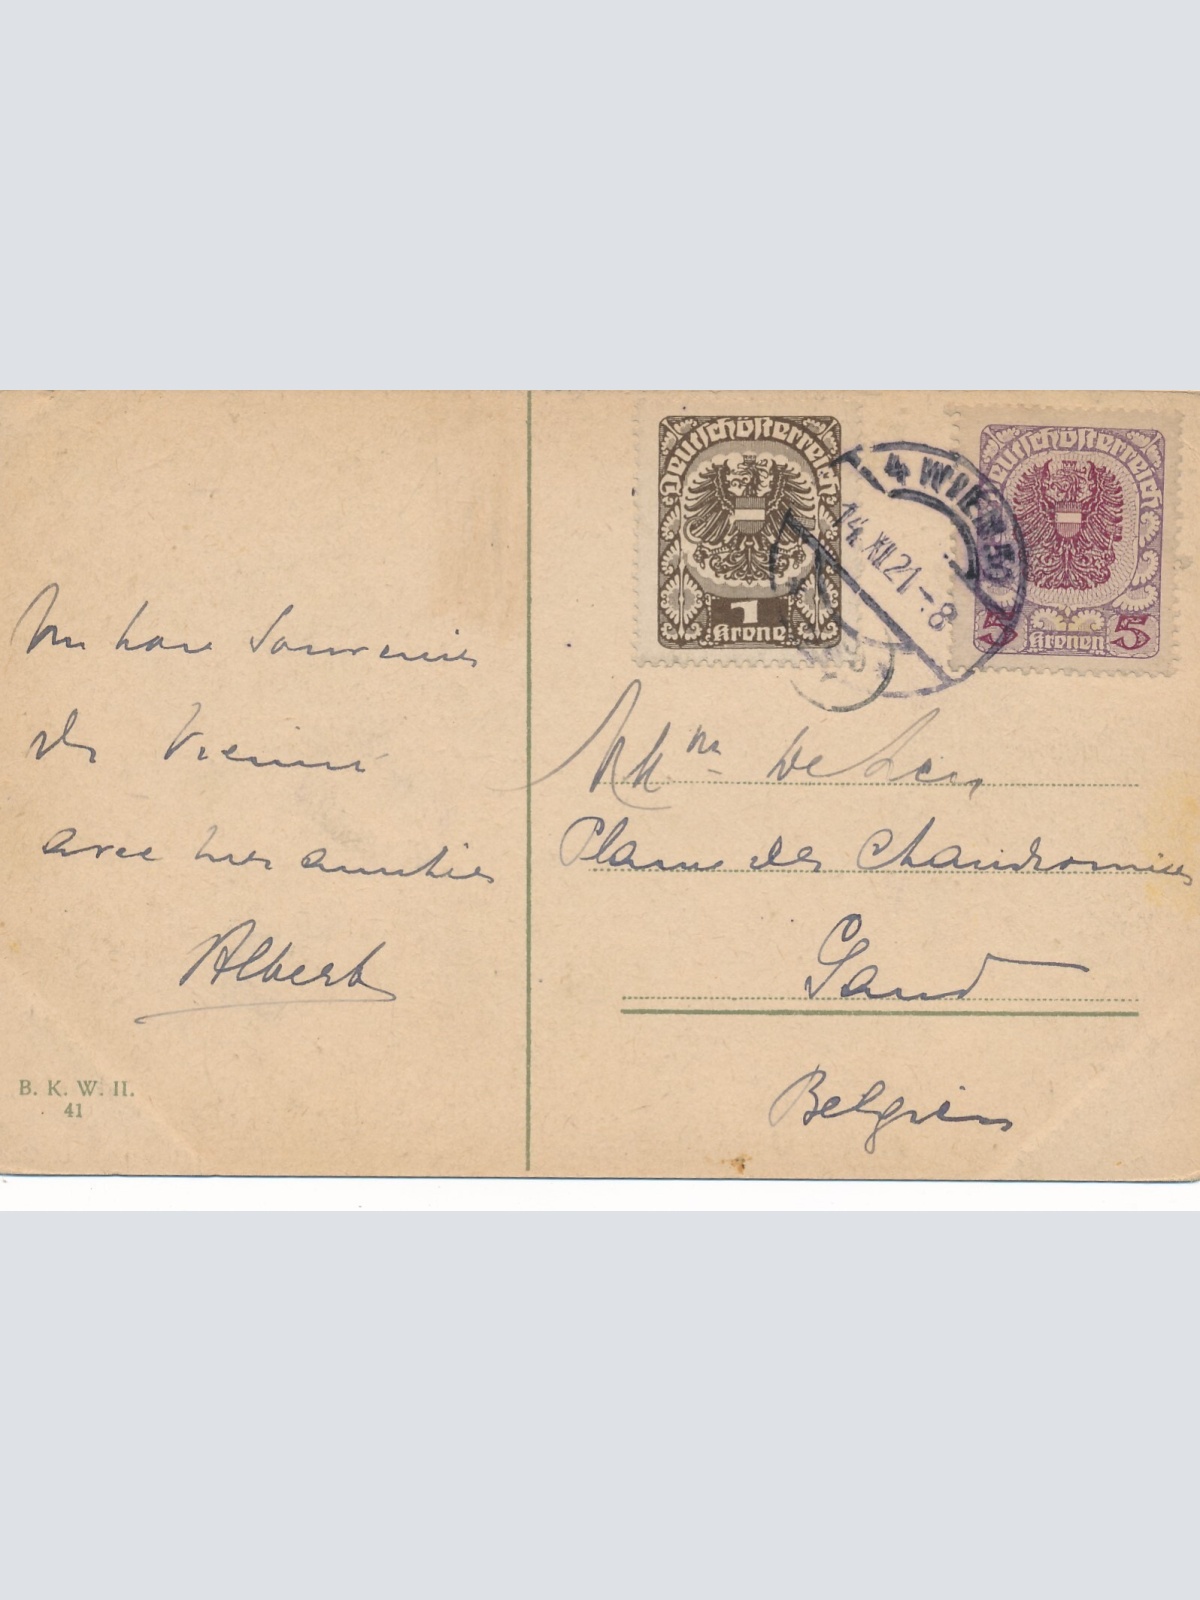 Deutschösterreich
1
Krone
4 WIEN 50
14.XII.21-8
Deutschösterreich
5 Kronen 5
Un bon Souvenir
de Vienne
avec mes amitiés
Albert
De
Place des
Gand
Belgien
B. K. W. II.
41